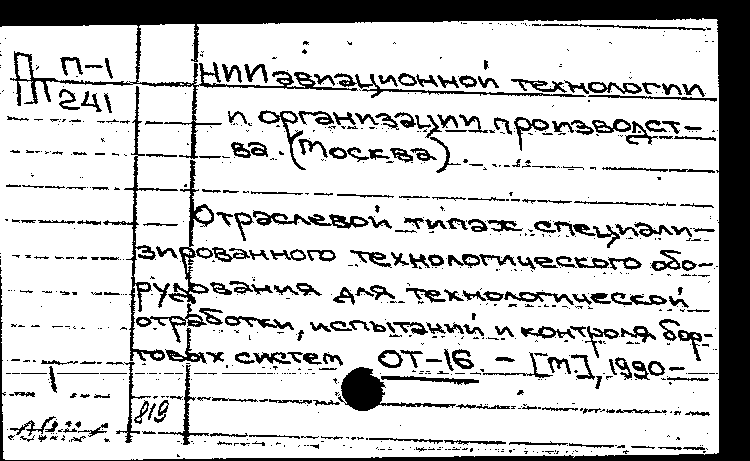 Пт П-1
241
НИИ авиационной технологии
и организации производст-
ва. (Москва).
Отраслевой типаж специали-
зированного технологического обо-
рудования для технологической
отработки, испытаний и контроля бор-
товых систем ОТ-16 - [М], 1990-
1
819